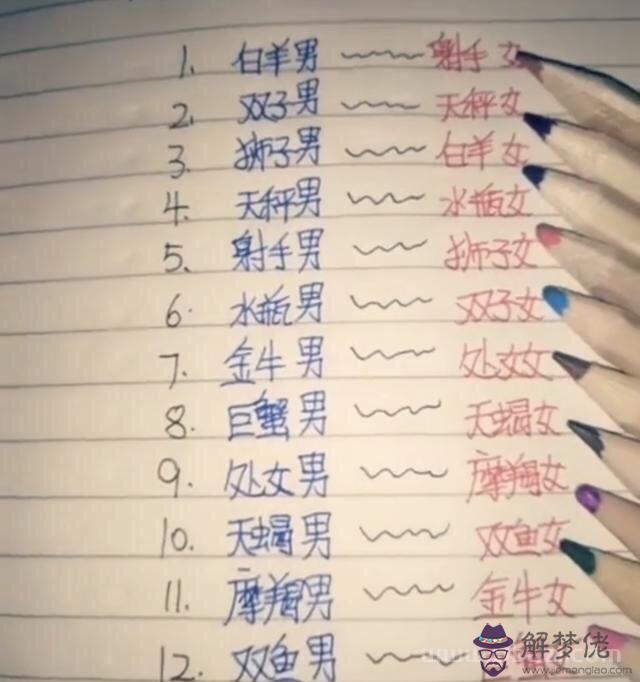 1. 白羊男 射手女
2. 双子男 天秤女
3. 狮子男 白羊女
4. 天秤男 水瓶女
5. 射手男 狮子女
6. 水瓶男 双子女
7. 金牛男 处女女
8. 巨蟹男 天蝎女
9. 处女男 摩羯女
10. 天蝎男 双鱼女
11. 摩羯男 金牛女
12. 双鱼男
解梦佬
www.jiemenglao.com